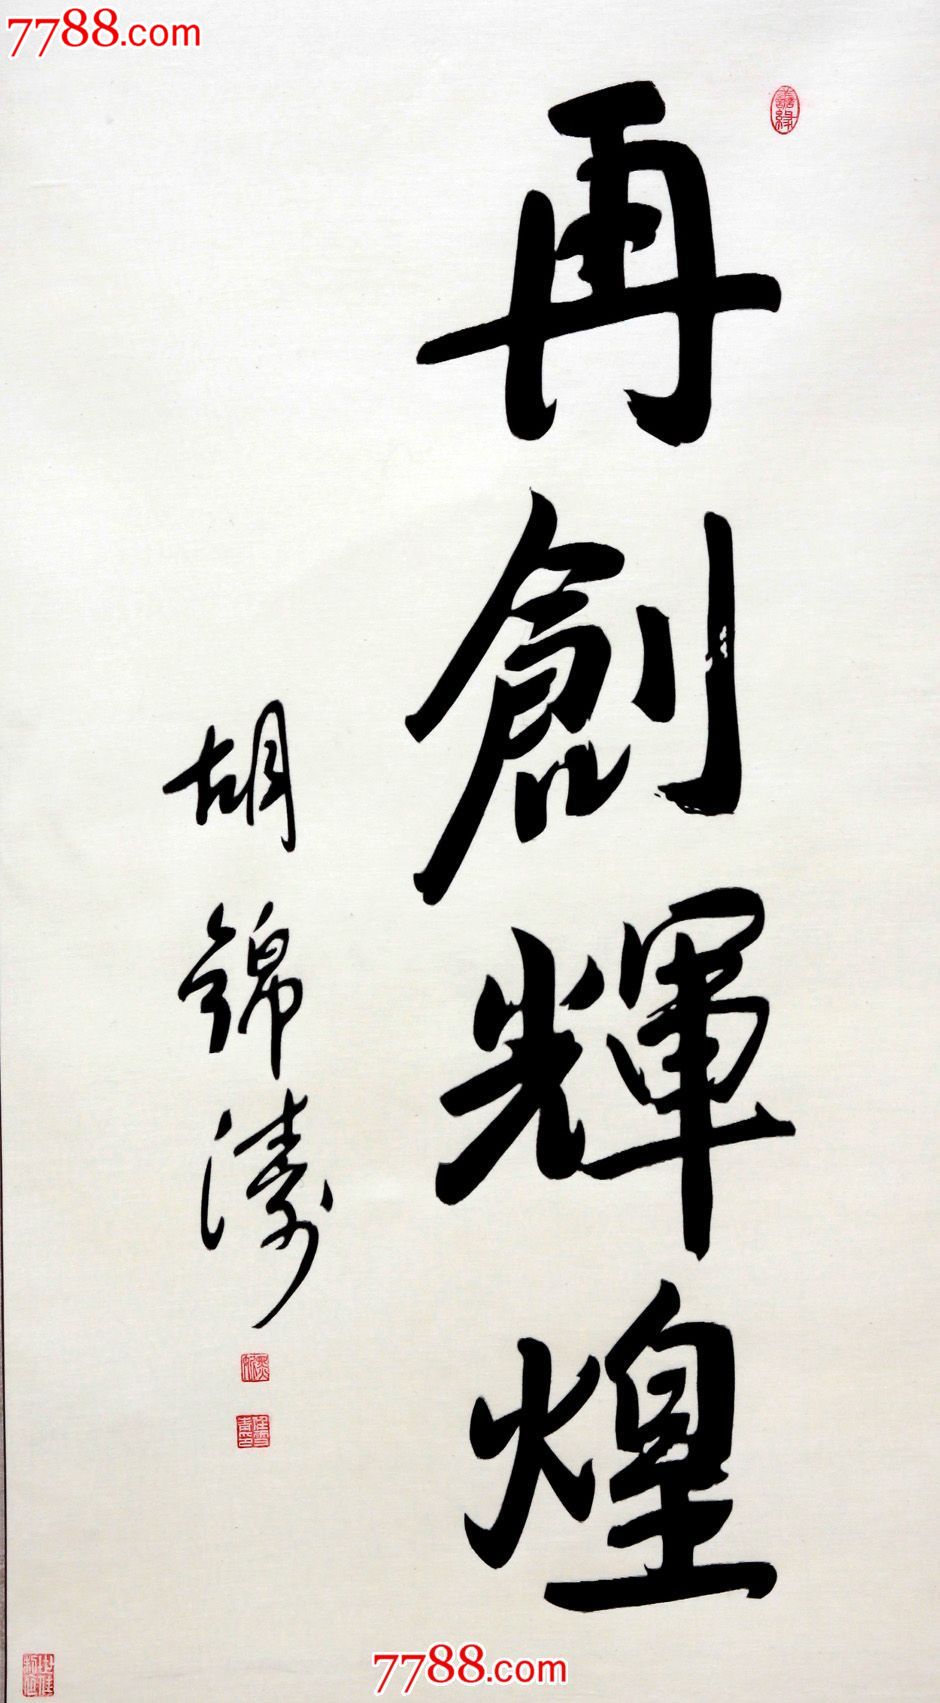 7788.com
再創輝煌
胡錦濤
7788.com